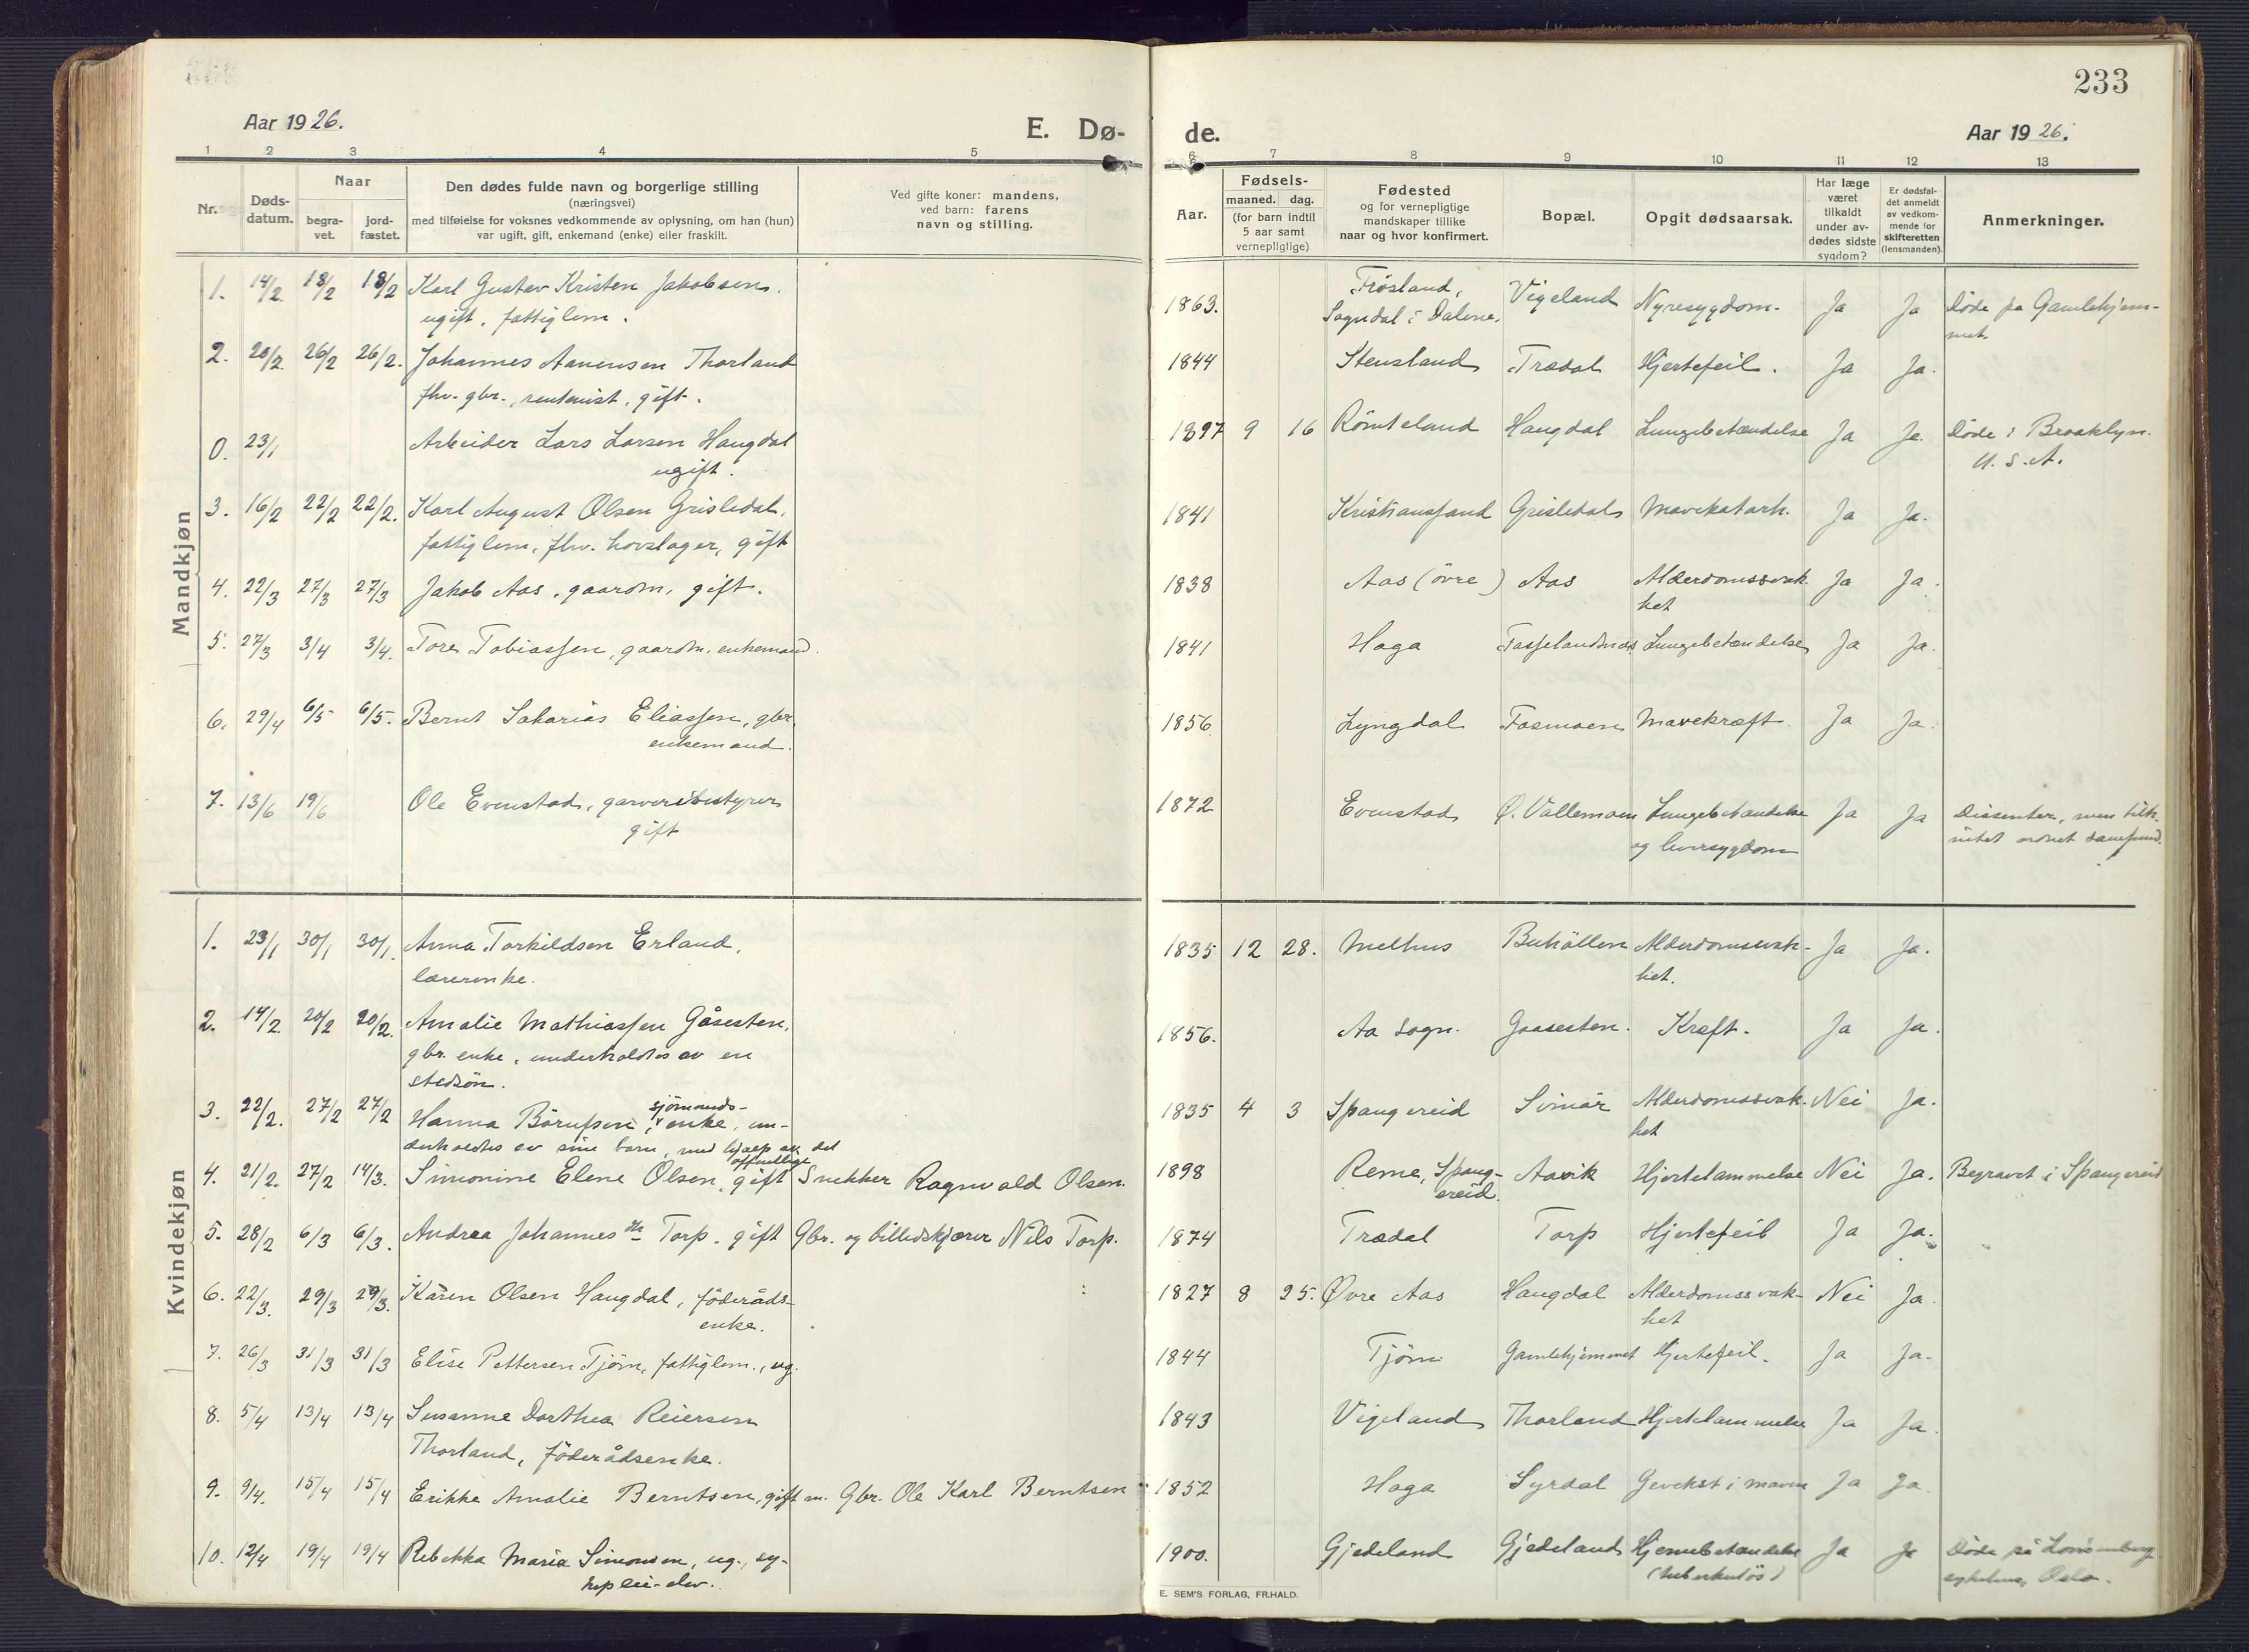 233
Aar 1926.
E. Dø-
de.
Aar 1926.
1 2 3 4 5 6 7 8 9 10 11 12 13
Nr.
Døds-
datum.
Naar
begra-
vet.
jord-
fæstet.
Den dødes fulde navn og borgerlige stilling
(næringsvei)
med tilføielse for voksnes vedkommende av oplysning, om han (hun)
var ugift, gift, enkemand (enke) eller fraskilt.
Ved gifte koner: mandens,
ved barn: farens
navn og stilling.
Aar.
Fødsels-
maaned. dag.
(for barn indtil
5 aar samt
vernepligtige)
Fødested
og for vernepligtige
mandskaper tillike
naar og hvor konfirmert.
Bopæl.
Opgit dødsaarsak.
Har læge
været
tilkaldt
under av-
dødes sidste
sygdom?
Er dødsfal-
det anmeldt
av vedkom-
mende for
skifteretten
(lensmanden).
Anmerkninger.
Mandkjøn
1. 14/2 18/2 18/2 Karl Gustav Kristen Jakobsen, 1863. Frøsland, Vigeland Nyresygdom. Ja Ja Døde på Gamlehjem-
ugift. fattiglem. Sogndal i Dalene. met.
2. 20/2 26/2 26/2. Johannes Aanensen Thorland 1844 Stensland Trædal Hjertefeil. Ja Ja.
fhv. gbr., rentenist, gift.
0. 23/1 Arbeider Lars Larsen Haugdal 1897 9 16 Römteland Haugdal Lungebetændelse Ja Ja. Døde i Brooklyn.
ugift. U.S.A.
3. 16/2 22/2 22/2. Karl August Olsen Grisledal, 1841 Kristianssand Grisledal Mavekatarh. Ja Ja.
fattiglem, fhv. hovslager, gift
4. 22/3 27/3 27/3 Jakob Aas, gaardm, gift. 1838 Aas (övre) Aas Alderdomssvak- Ja Ja.
het
5. 27/3 3/4 3/4. Tore Tobiassen, gaardm. enkemand. 1841 Haga Fasselandsnæs Lungebetændelse Ja Ja.
6. 29/4 6/5 6/5. Bernt Sakarias Eliassen, gbr. 1856 Lyngdal Fosmoen Mavekræft. Ja Ja.
enkemand.
7. 13/6 19/6 Ole Evenstad, garveribestyrer 1872 Evenstad Ø. Vallemoen Lungebetændelse Ja Ja Dissenter, men tilk-
gift og leversygdom nitet ordnet samfund.
Kvindekjøn
1. 23/1 30/1 30/1. Anna Torkildsen Erland, 1835 12 28. Melhus Buhöllen Alderdomssvak- Ja Ja.
lærerenke. het.
2. 14/2 20/2 20/2. Amalie Mathiassen Gåsesten, 1856. Aa sogn. Gaasesten. Kræft. Ja Ja.
gbr. enke, underholdtes av en
stedsön.
3. 22/2. 27/2 27/2 Hanna Börufsen, sjömands-enke, un- 1835 4 3 Spangereid Svinör Alderdomssvak- Nei Ja.
derholdtes av sine barn, med hjælp av det offentlige het
4. 21/2. 27/2 14/3. Simonine Elene Olsen, gift Snekker Ragnvald Olsen. 1898 Reme, Spang- Aavik Hjertelammelse Nei Ja. Begravet i Spangereid
ereid.
5. 28/2 6/3 6/3. Andrea Johannesdr Torp. gift Gbr. og billedskjærer Nils Torp. 1874 Trædal Torp Hjertefeil Ja Ja.
6. 22/3. 29/3 29/3. Karen Olsen Haugdal, föderåds- 1827 8 25. Øvre Aas Haugdal Alderdomssvak- Nei Ja.
enke. het
7. 26/3 31/3 31/3 Elise Pettersen Tjöm, fattiglem., ug. 1844 Tjöm Gamlehjemmet Hjertefeil. Ja Ja.
8. 5/4 13/4 13/4 Susanne Dorthea Reiersen 1843 Vigeland Thorland Hjertelammelse Ja Ja.
Thorland, föderådsenke.
9. 9/4. 15/4 15/4 Erikke Amalie Berntsen, gift m. Gbr. Ole Karl Berntsen 1852 Haga Syrdal Gevekst i maven Ja Ja.
10. 12/4 19/4 19/4 Rebekka Maria Simonsen, ug., sy- 1900. Gjedeland Gjedeland Hjernebetændelse Ja Ja Døde på
keplei-elev. (tuberkulös) Oslo.
E. SEM'S FORLAG, FR.HALD.